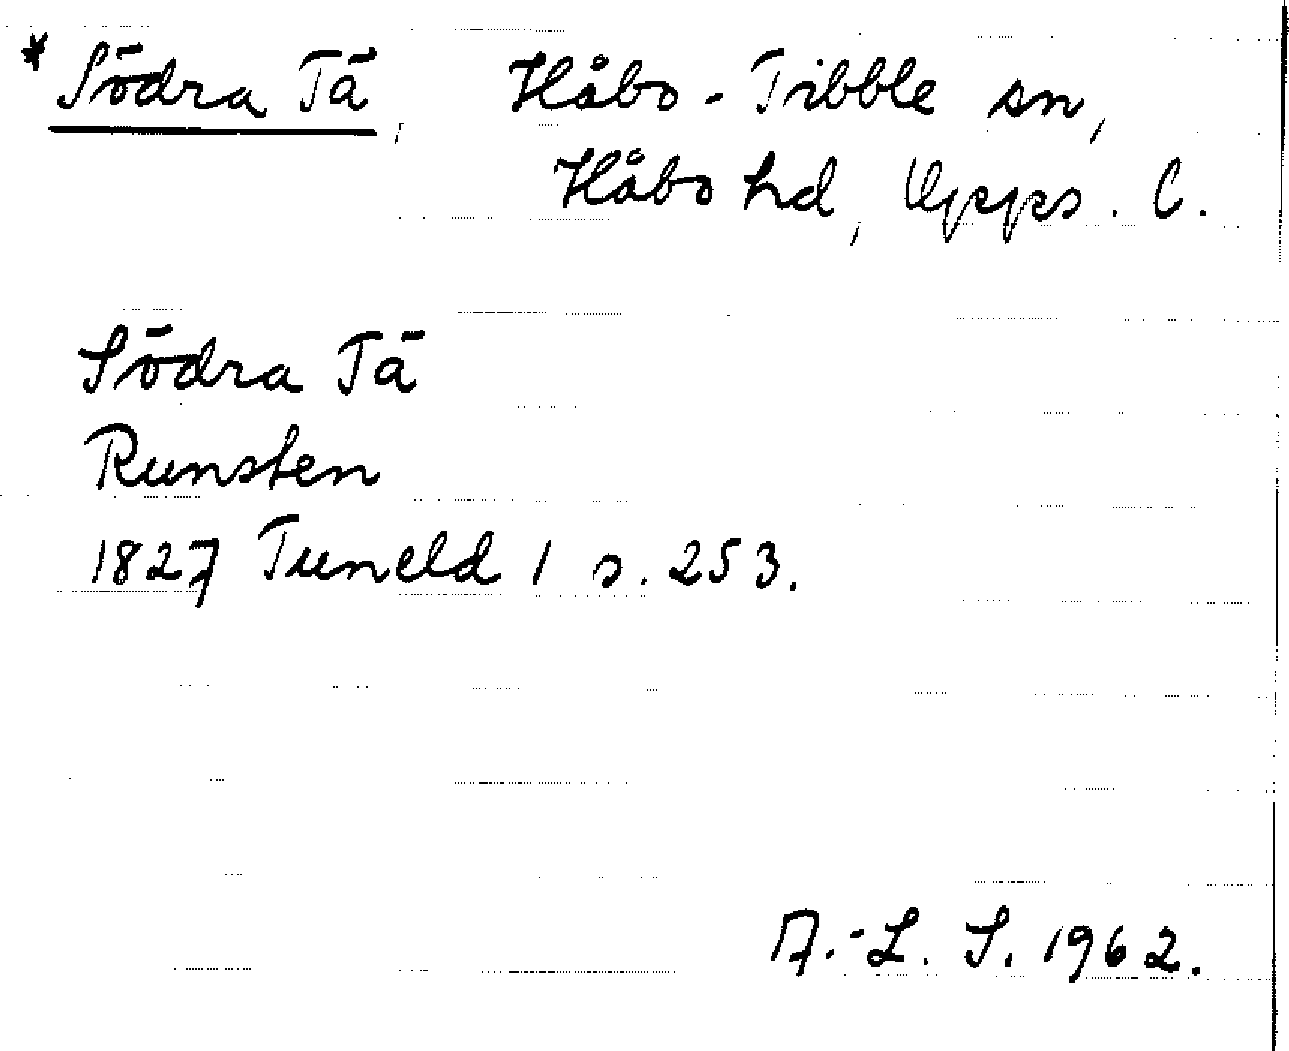 * Södra Tä, Håbo-Tibble sn,
Håbo hd, Upps. l.
Södra Tä
Runsten
1827 Tuneld 1 s. 253.
A.-L. S. 1962.